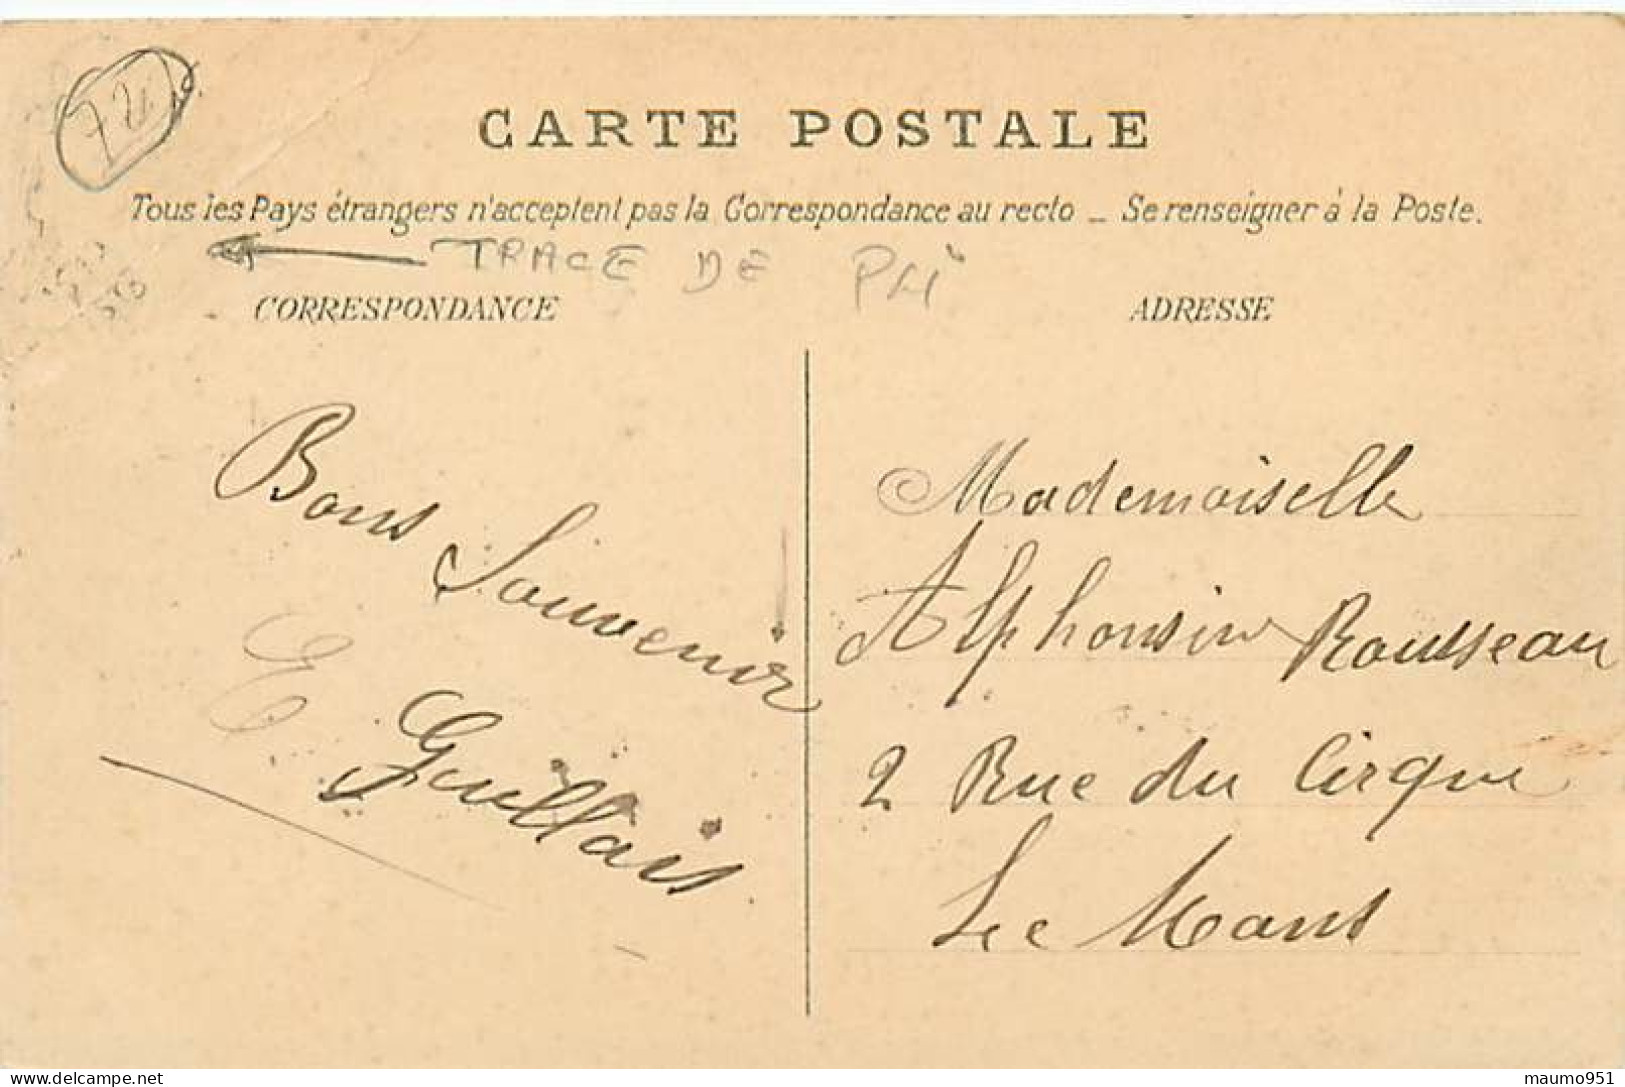 72
CARTE POSTALE
Tous les Pays étrangers n'acceptent pas la Correspondance au recto _ Se renseigner à la Poste.
TRACE DE PLI
CORRESPONDANCE
ADRESSE
Bons
Souvenir
E Guillais
Mademoiselle
Alphonsin Rousseau
2 Rue du Cirque
Le Mans
delcampe.net
maumo951